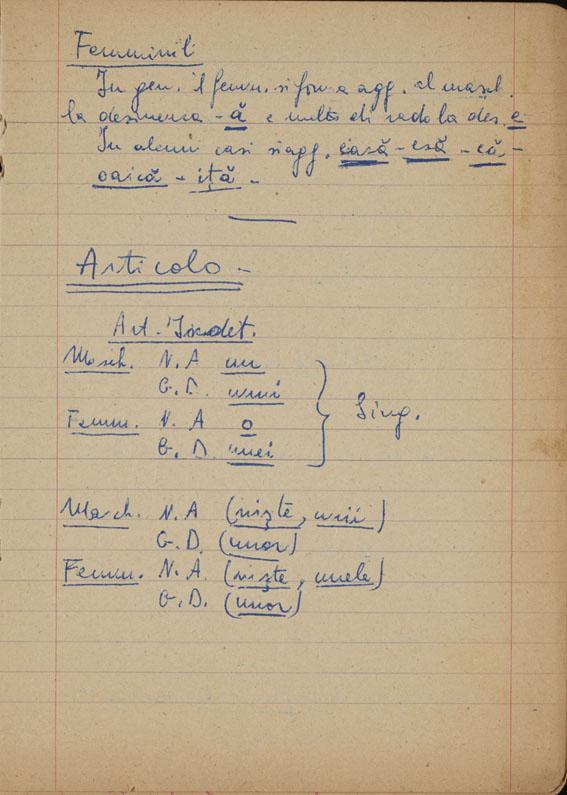 Femminile
In gen. il femm. si for a agg. al masch.
la desinenza - ă e molto di rado la des. e
In alcuni casi si agg. easă - esă - că -
oaică - iță -
Articolo -
Art. Indet.
Masch. N. A un
G. D. unui
Femm. N. A o
G. D. unei
Sing.
Masch. N. A (niște, unii)
G. D. (unor)
Femm. N. A. (niște, unele)
G. D. (unor)